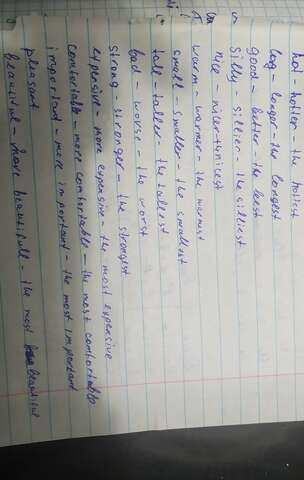 hot - hotter - the hottest
long - longer - the longest
good - better - the best
Silly - sillier - the silliest
nice - nicer - the nicest
warm - warmer - the warmest
small - smaller - the smallest
tall - taller - the tallest
bad - worse - the worst
strong - stronger - the strongest
expensive - more expensive - the most expensive
comfortable - more comfortable - the most comfortable
important - more important - the most important
pleasant
beautiful - more beautifull - the most beautiful